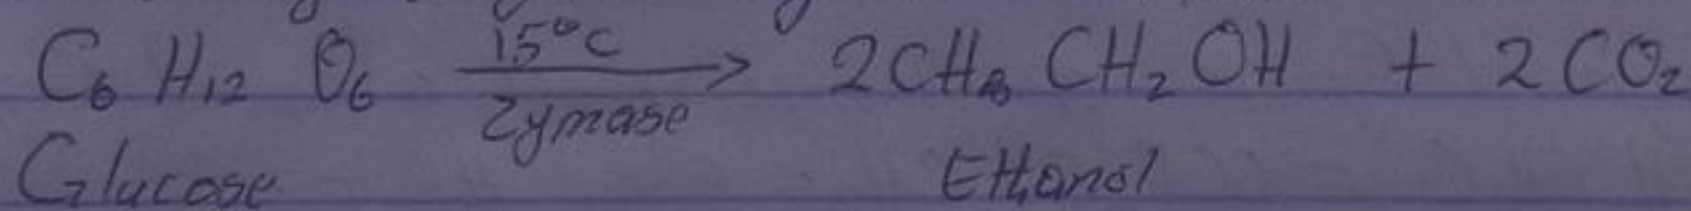 C₆ H₁₂ O₆ 15°C Zymase → 2CH₃ CH₂ OH + 2CO₂
Glucose Ethanol